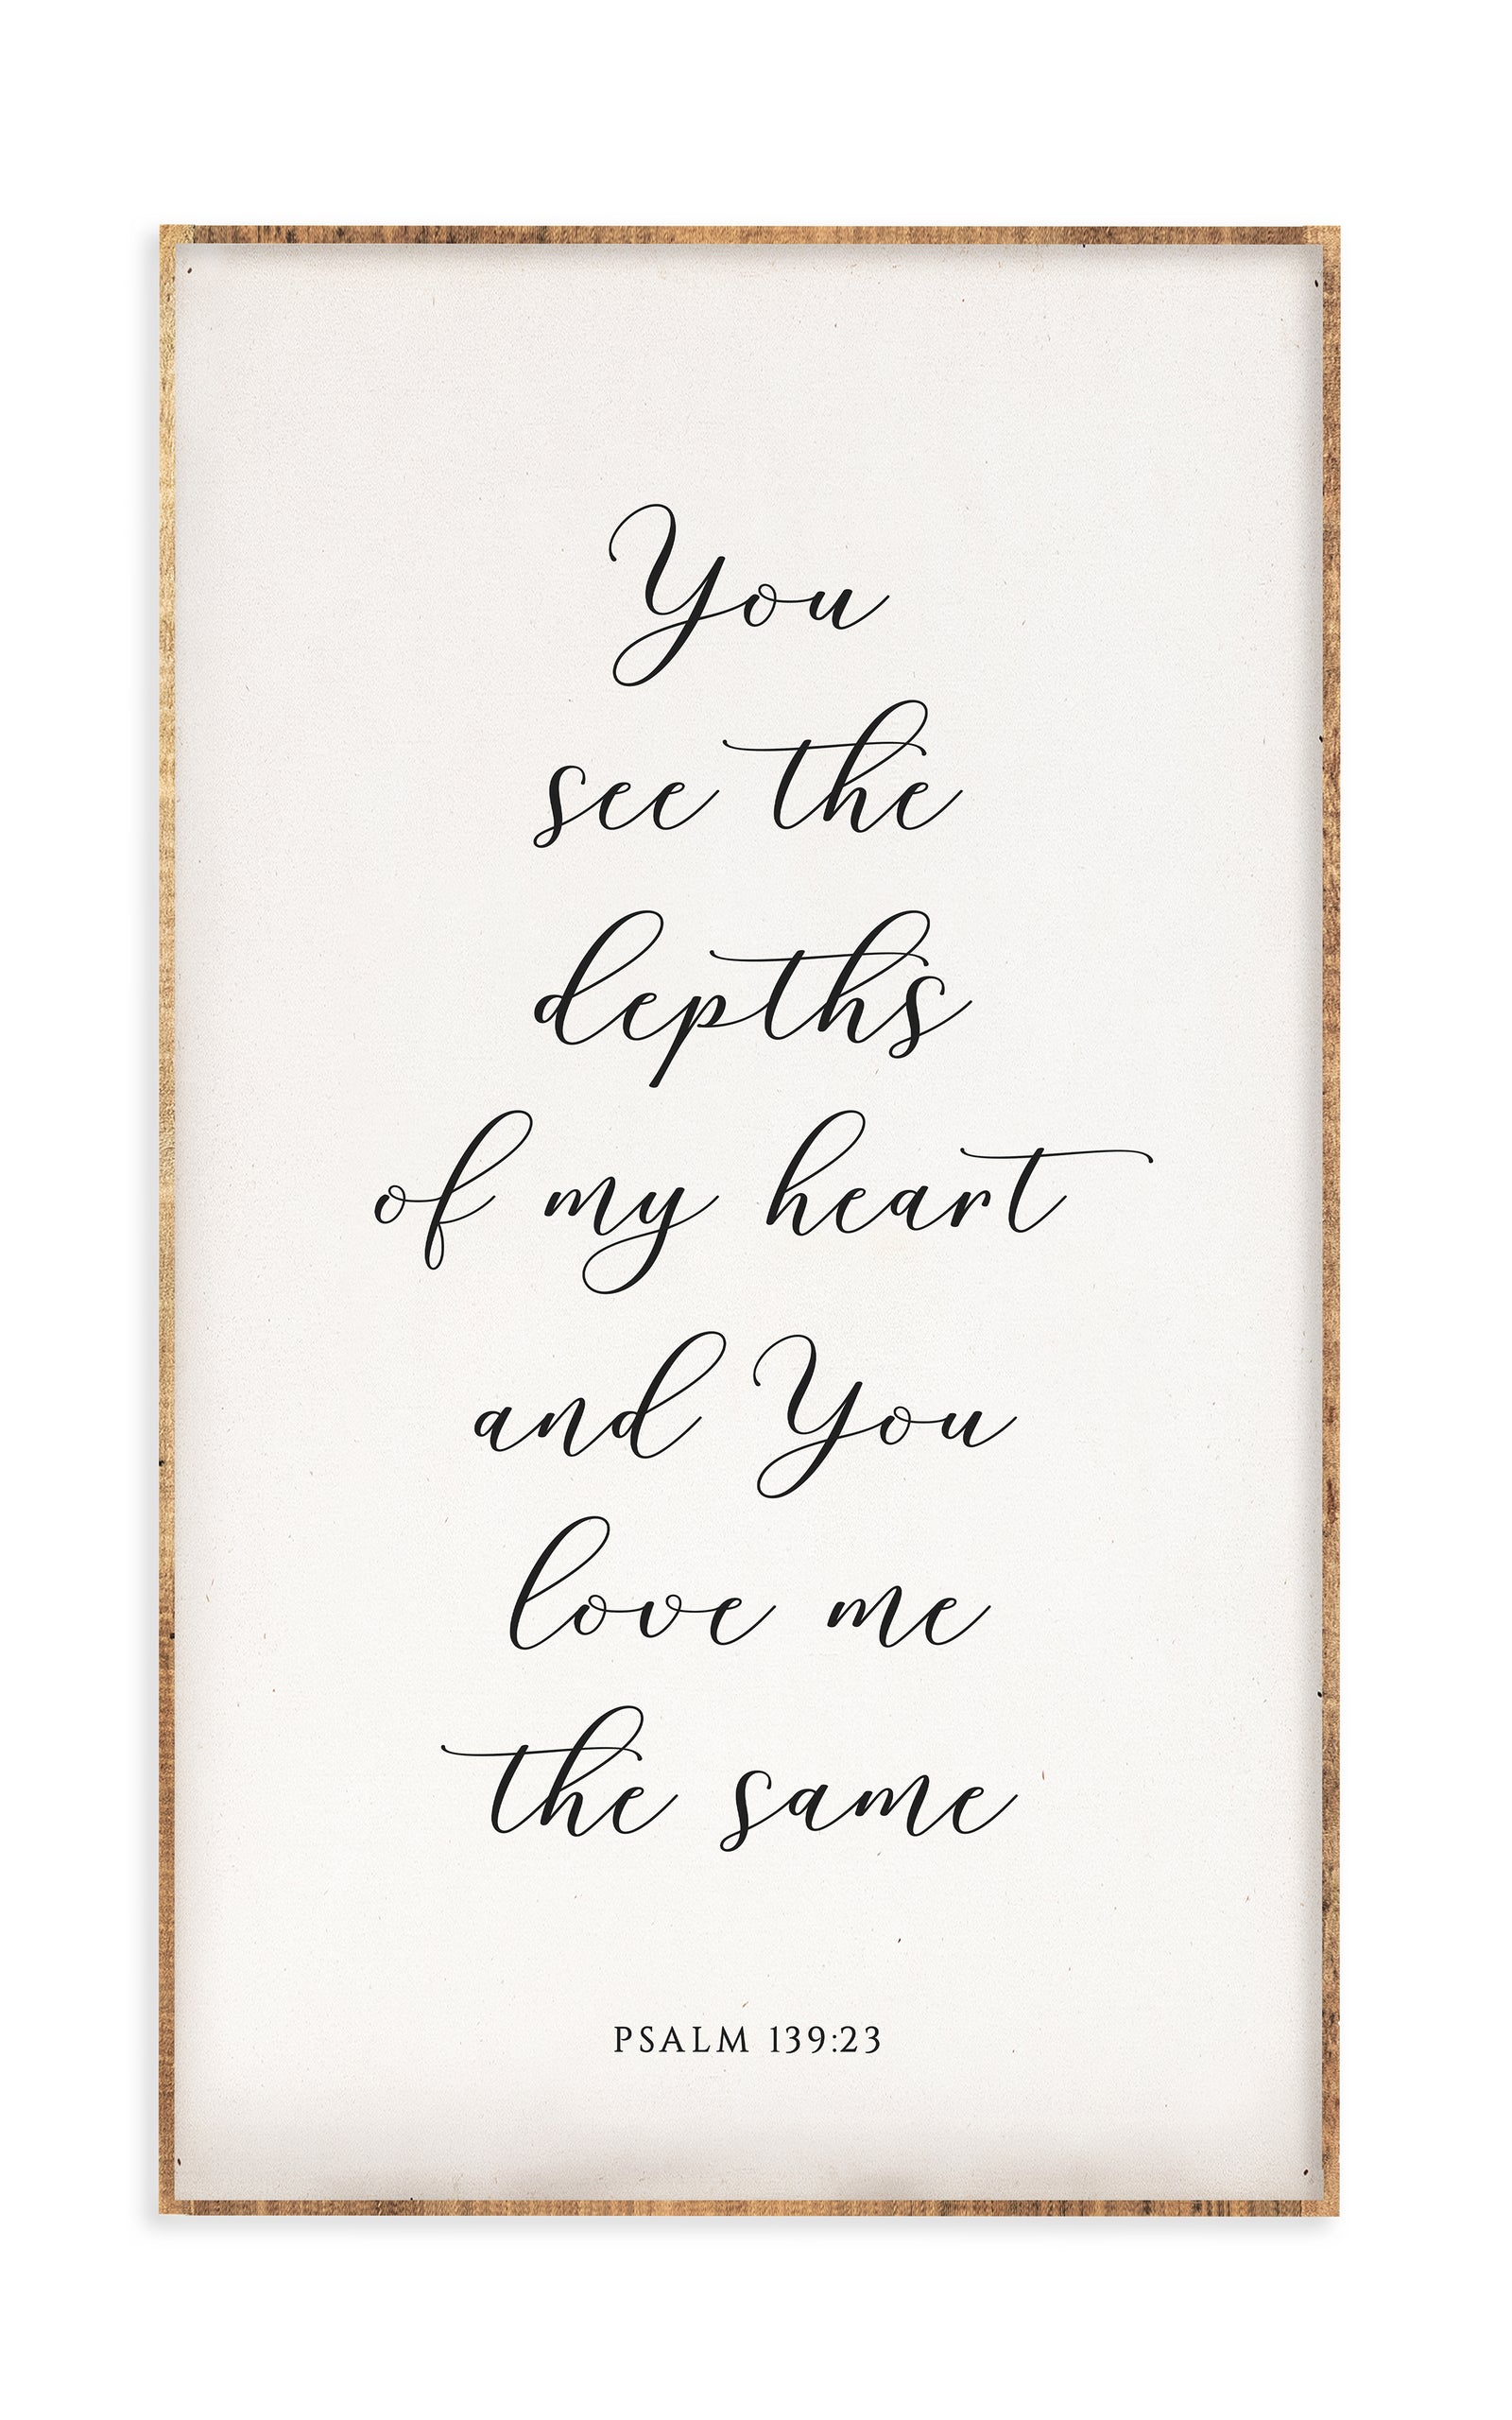 You
see the
depths
of my heart
and You
love me
the same
PSALM 139:23